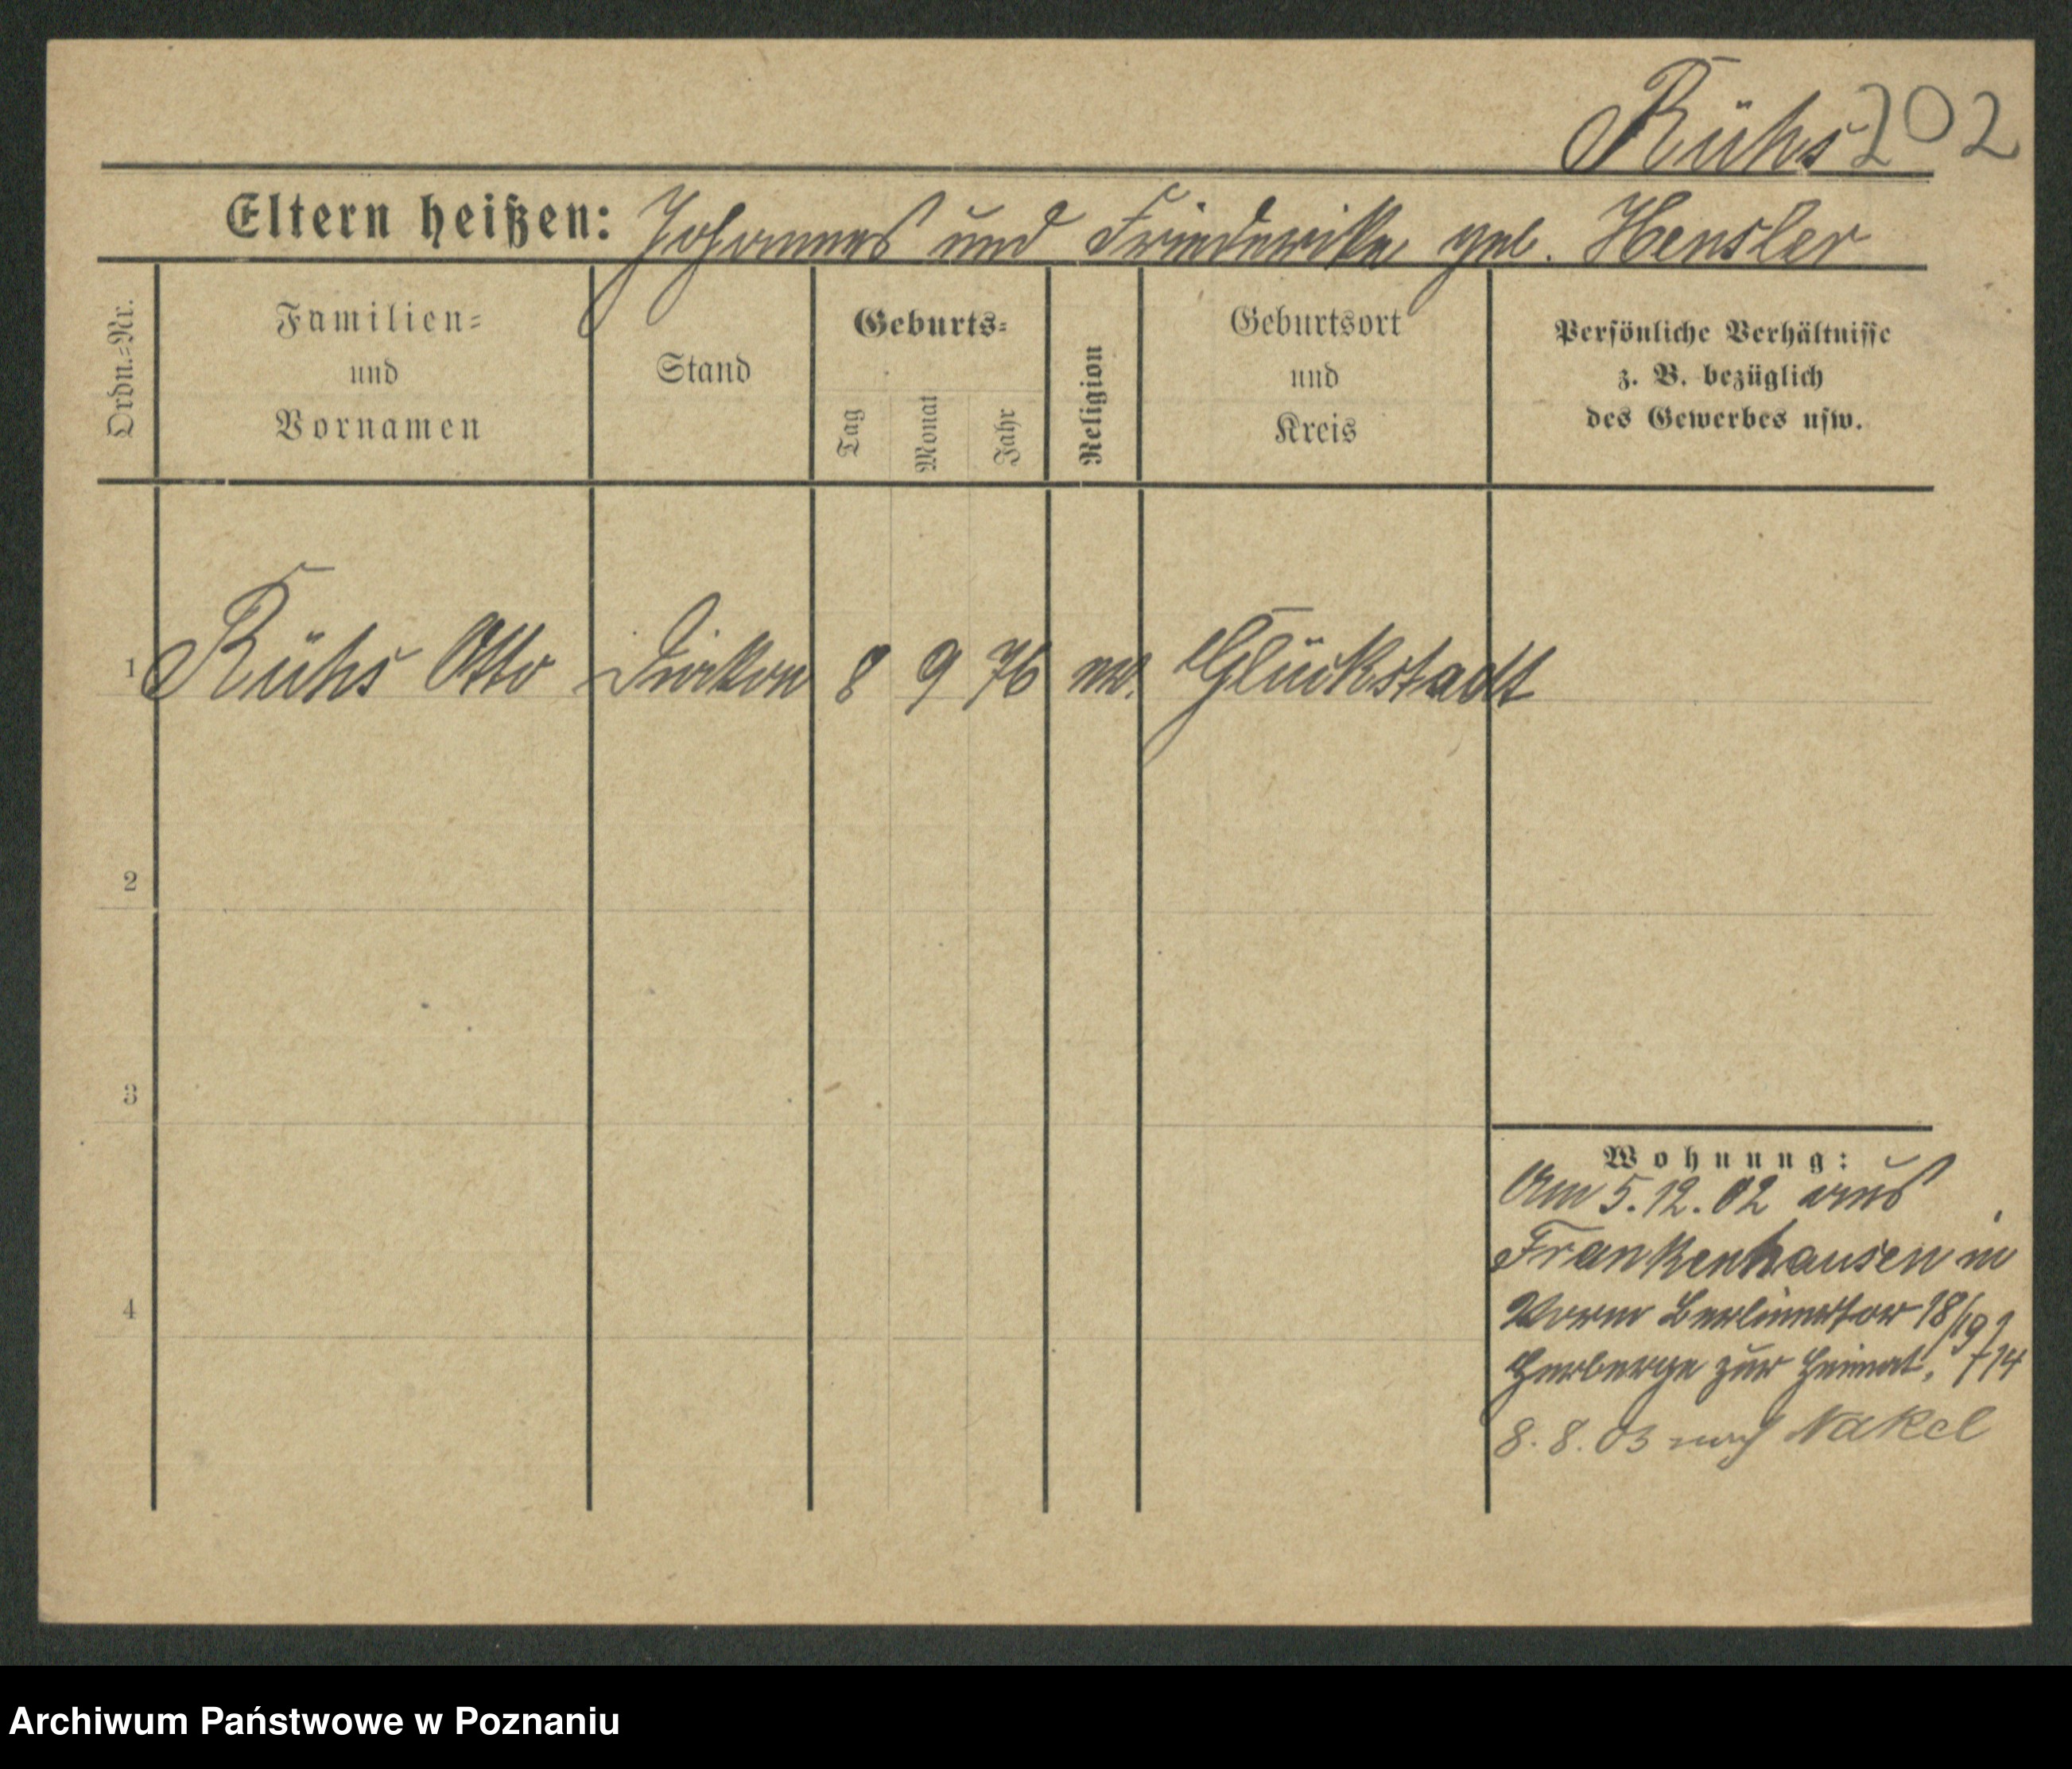 Rühs 202
Eltern heißen: Johannes und Friederike geb. Hensler
Ordn.=Nr.
Familien=
und
Vornamen
Stand
Geburts=
Tag
Monat
Jahr
Religion
Geburtsort
und
Kreis
Persönliche Verhältnisse
z. B. bezüglich
des Gewerbes usw.
1 Rühs Otto Diakon 8 9 76 ev. Glückstadt
2
3
4
Wohnung:
Am 5.12.02 aus
Frankenhausen in
Vorm Berlinertor 18/19
Herberge zur Heimat. 714
8.8.03 nach Nakel
Archiwum Państwowe w Poznaniu